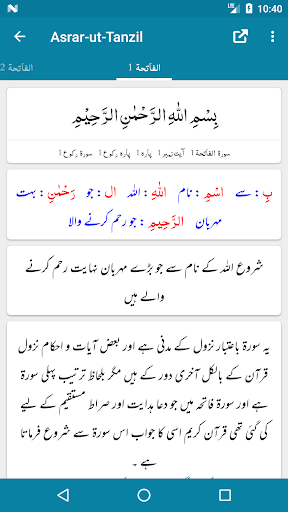 10:40
Asrar-ut-Tanzil
الفاتحة 1
الفاتحة 2
بِسْمِ اللهِ الرَّحْمٰنِ الرَّحِيْمِ
سورة الفاتحة 1 آیت نمبر 1 پارہ 1 پارہ رکوع 1 سورة رکوع 1
بِ : سے اسْمِ : نام اللهِ : اللہ ال : جو رَحْمٰنِ : بہت
مہربان الرَّحِيمِ : جو رحم کرنے والا
شروع اللہ کے نام سے جو بڑے مہربان نہایت رحم کرنے
والے ہیں
یہ سورۃ باعتبار نزول کے مدنی ہے اور بعض آیات و احکام نزول
قرآن کے بالکل آخری دور کے ہیں مگر بلحاظ ترتیب پہلی سورۃ
ہے اور سورۃ فاتحہ میں جو دعا ہدایت اور صراط مستقیم کے لیے
کی گئی تھی قرآن کریم اسی کا جواب اس سورۃ سے شروع فرماتا
ہے ۔